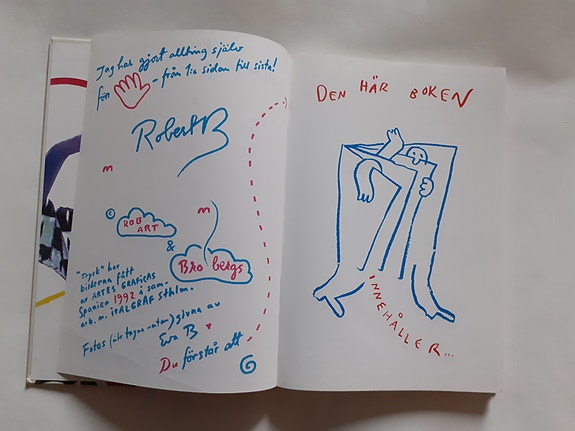 Jag har gjort allting själv
för - från 1:a sidan till sista!
RobertB
m
m
© ROB ART
&
Bro bergs
"Tryck" har
bilderna fått
av ARTES GRAFICAS
Spanien 1992 i sam-
arb. m. ITALGRAF Sthlm.
Fotos (inte tagna - utan) givna av
Eva B
Du förstår allt
DEN HÄR BOKEN
INNEHÅLLER...